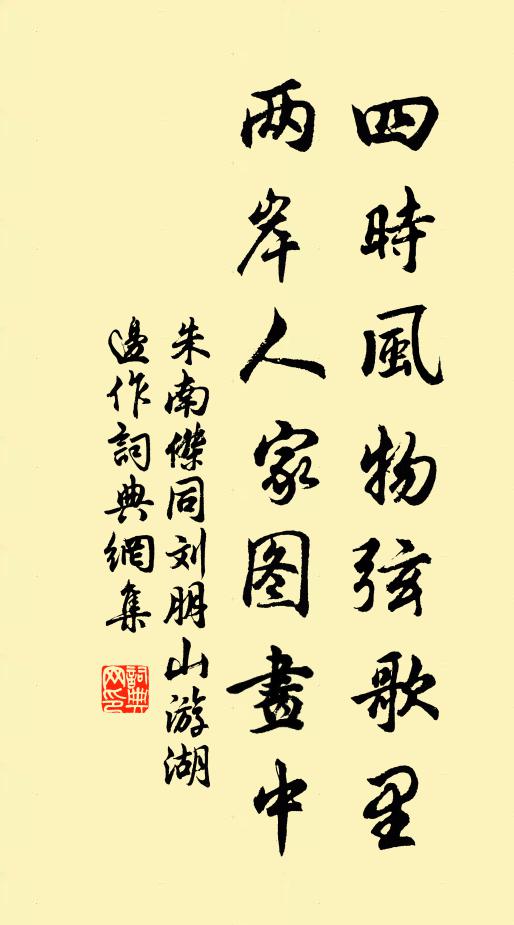 四時風物弦歌里
两岸人家图畫中
朱南傑同刘朋山游湖
邊作詞典網集
詞典网印